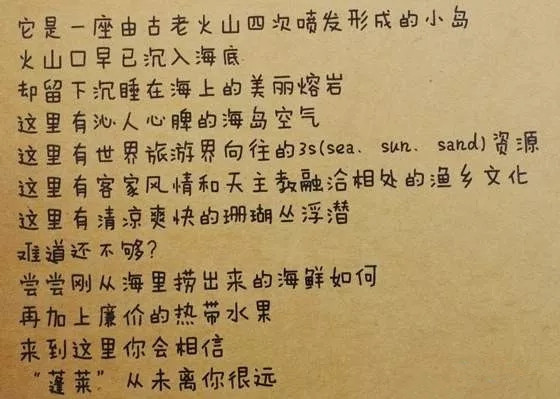 它是一座由古老火山四次喷发形成的小岛
火山口早已沉入海底
却留下沉睡在海上的美丽熔岩
这里有沁人心脾的海岛空气
这里有世界旅游界向往的3s(sea、sun、sand)资源
这里有客家风情和天主教融洽相处的渔乡文化
这里有清凉爽快的珊瑚丛浮潜
难道还不够?
尝尝刚从海里捞出来的海鲜如何
再加上廉价的热带水果
来到这里你会相信
“蓬莱”从未离你很远